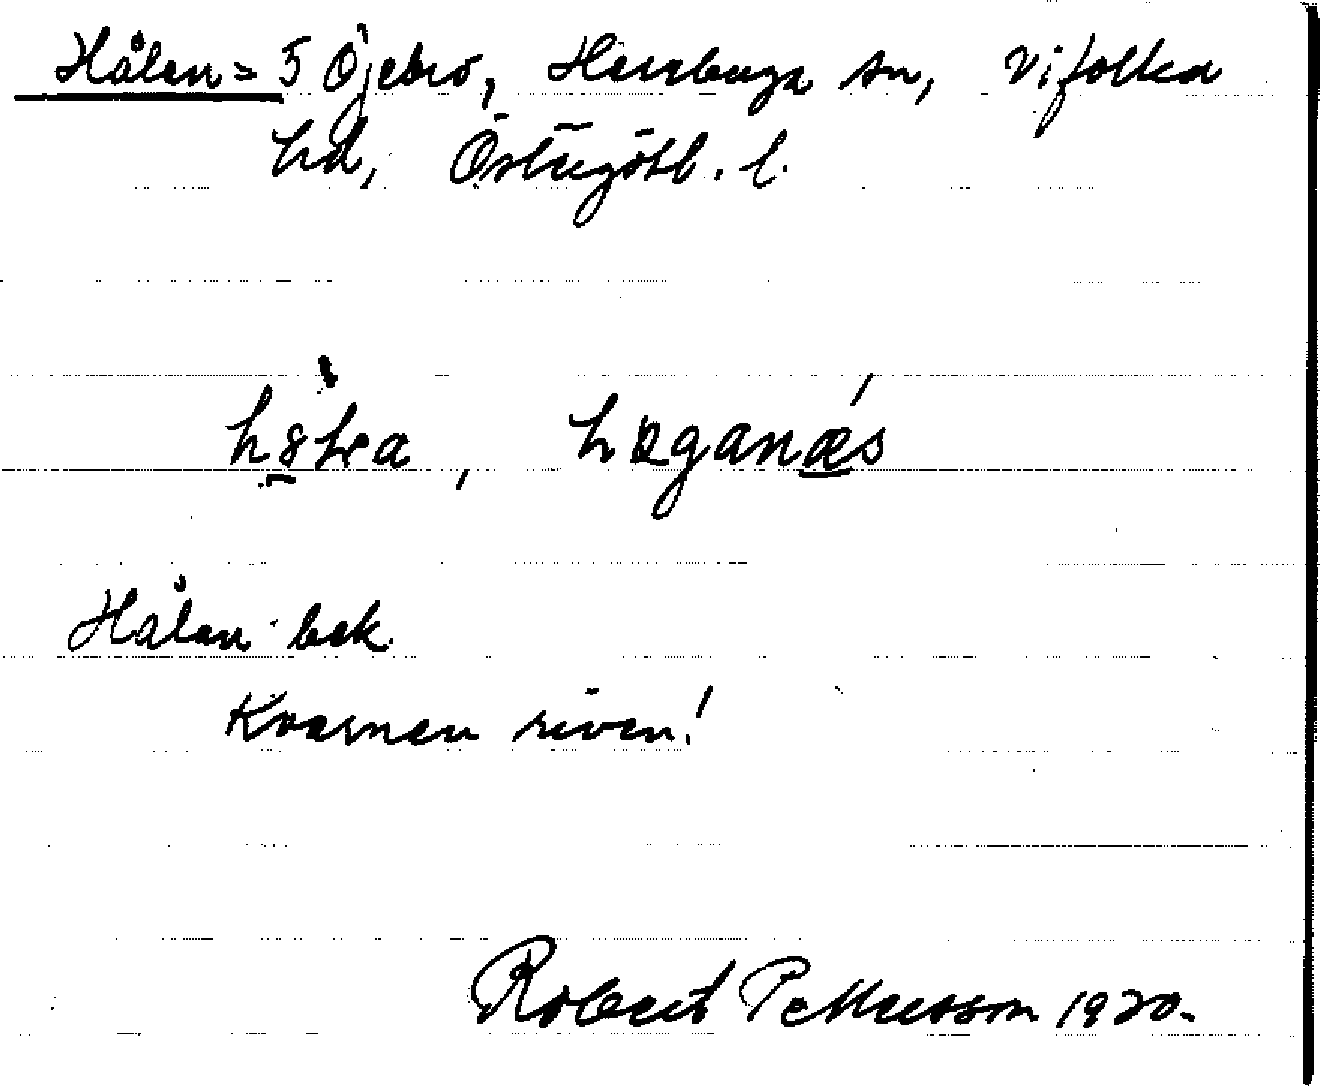 Hålan = 5 Öjebro, Herrberga sn, Vifolka
hd, Östergötl. l.
Hålan bek.
Kvarnen riven!
Robert Pettersson 1920.